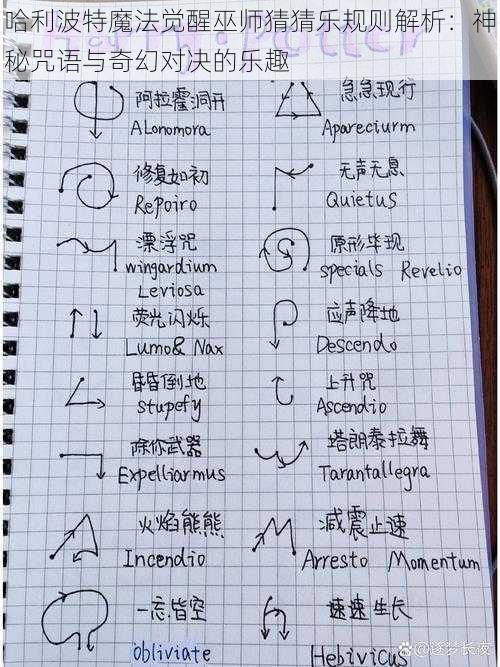 哈利波特魔法觉醒巫师猜猜乐规则解析：神
秘咒语与奇幻对决的乐趣
阿拉霍洞开
ALonomora
急急现行
Apareciurm
修复如初
Repoiro
无声无息
Quietus
漂浮咒
wingardium
Leviosa
原形毕现
specials Revelio
荧光闪烁
Lumo& Nax
应声降地
Descendo
昏昏倒地
stupefy
上升咒
Ascendio
除你武器
Expelliarmus
塔朗泰拉舞
Tarantallegra
火焰熊熊
Incendio
减震止速
Arresto Momentum
一忘皆空
obliviate
速速生长
Hebivicus
@逐梦长夜